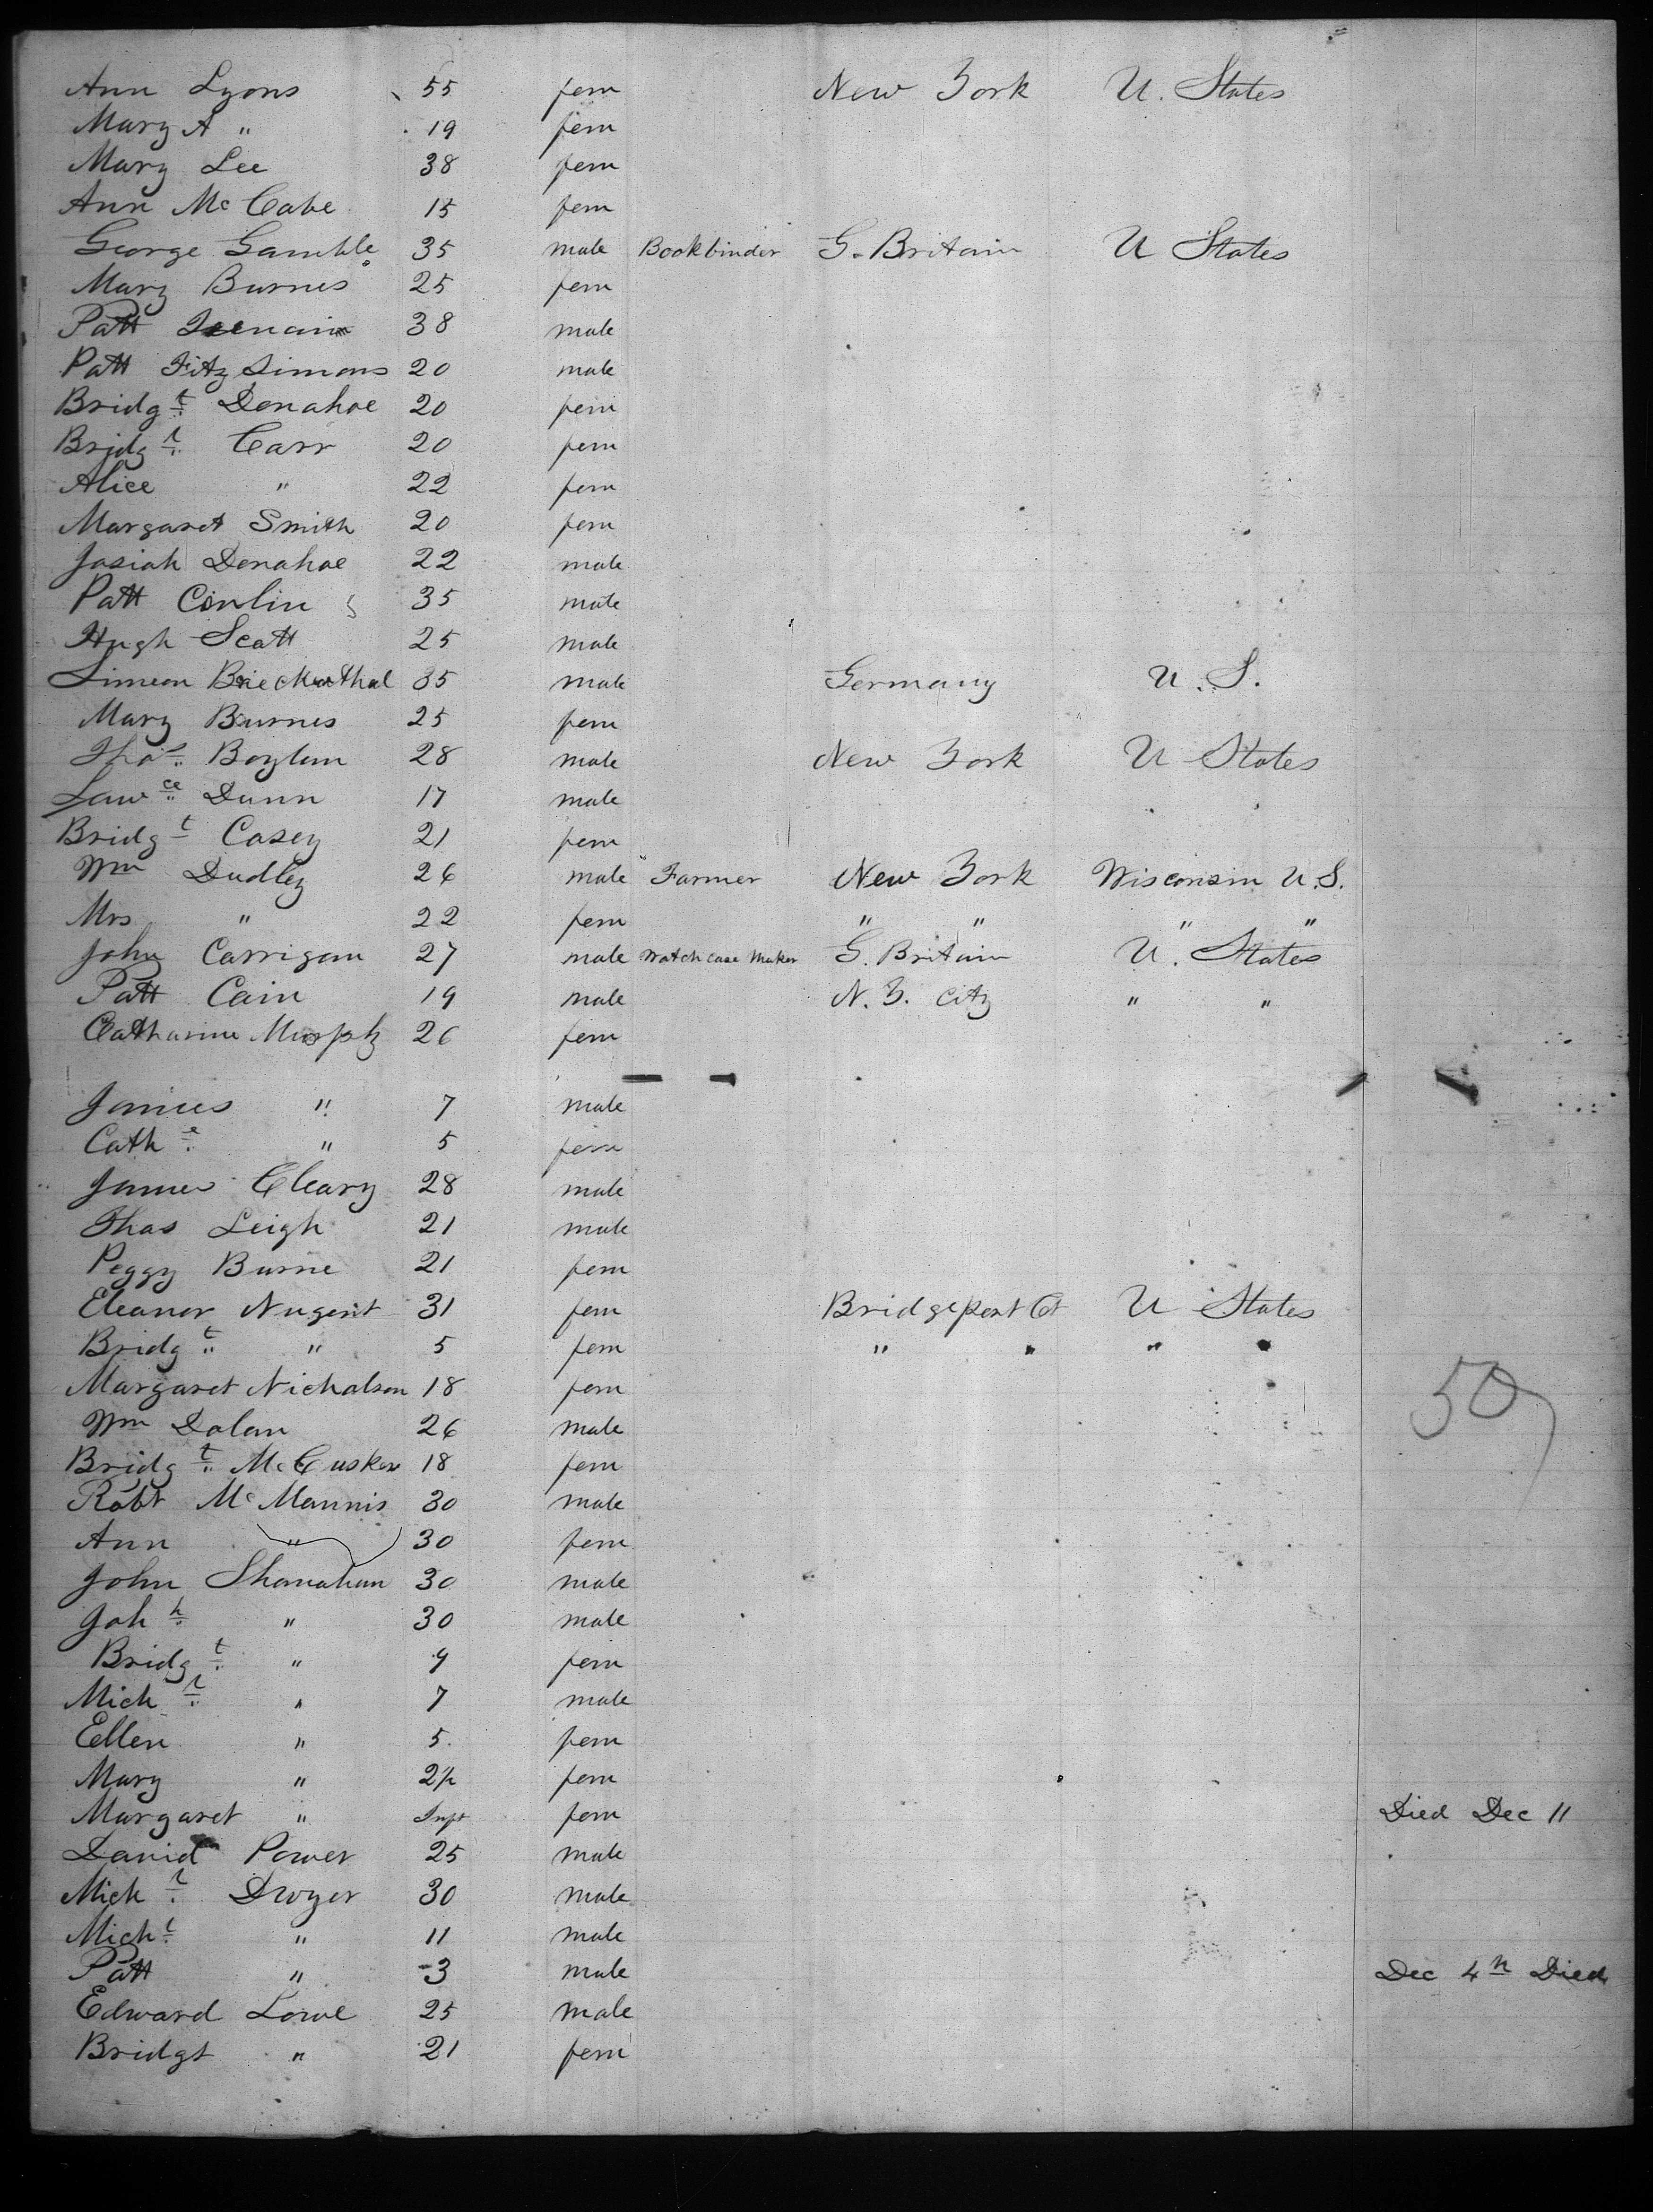 Ann Lyons 55 fem New York U. States
Mary A " 19 fem
Mary Lee 38 fem
Ann McCabe 15 fem
George Gamble 35 male Bookbinder G. Britain U States
Mary Burnes 25 fem
Patt 38 male
Patt Fitz Simons 20 male
Bridgt Donahoe 20 fem
Bridgt Carr 20 fem
Alice " 22 fem
Margaret Smith 20 fem
Josiah Donahoe 22 male
Patt Conlin 35 male
Hugh Scott 25 male
Simeon 35 male Germany U.S.
Mary Burnes 25 fem
Thos Boylan 28 male New York U States
Lawce Dunn 17 male
Bridgt Casey 21 fem
Wm Dudley 26 male Farmer New York Wisconsin U.S.
Mrs " 22 fem " " " "
John Carrigan 27 male Watch case Maker G. Britain U. States
Patt Cain 19 male N.Y. City " "
Catharine Murphy 26 fem
James " 7 male
Cathe " 5 fem
James Cleary 28 male
Thos Leigh 21 male
Peggy Burne 21 fem
Eleanor Nugent 31 fem Bridgeport Ct U States
Bridgt " 5 fem " " " "
Margaret Nicholson 18 fem
Wm Dolan 26 male
Bridgt McCusker 18 fem
Robt McMannis 30 male
Ann " 30 fem
John Shanahan 30 male
Johh " 30 male
Bridgt " 9 fem
Michl " 7 male
Ellen " 5 fem
Mary " 2½ fem
Margaret " Inft fem Died Dec 11
David Power 25 male
Michl Dwyer 30 male
Michl " 11 male
Patt " 3 male Dec 4th Died
Edward Lowe 25 male
Bridgt " 21 fem
50